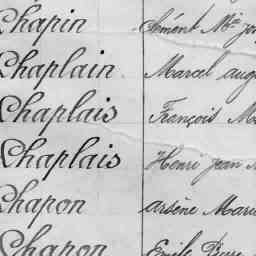 Chapin Clément M
Chaplain Marcel aug
Chaplais François M
Chaplais Henri jean
Chapon arsène Marie
Chapon Emile Pierre